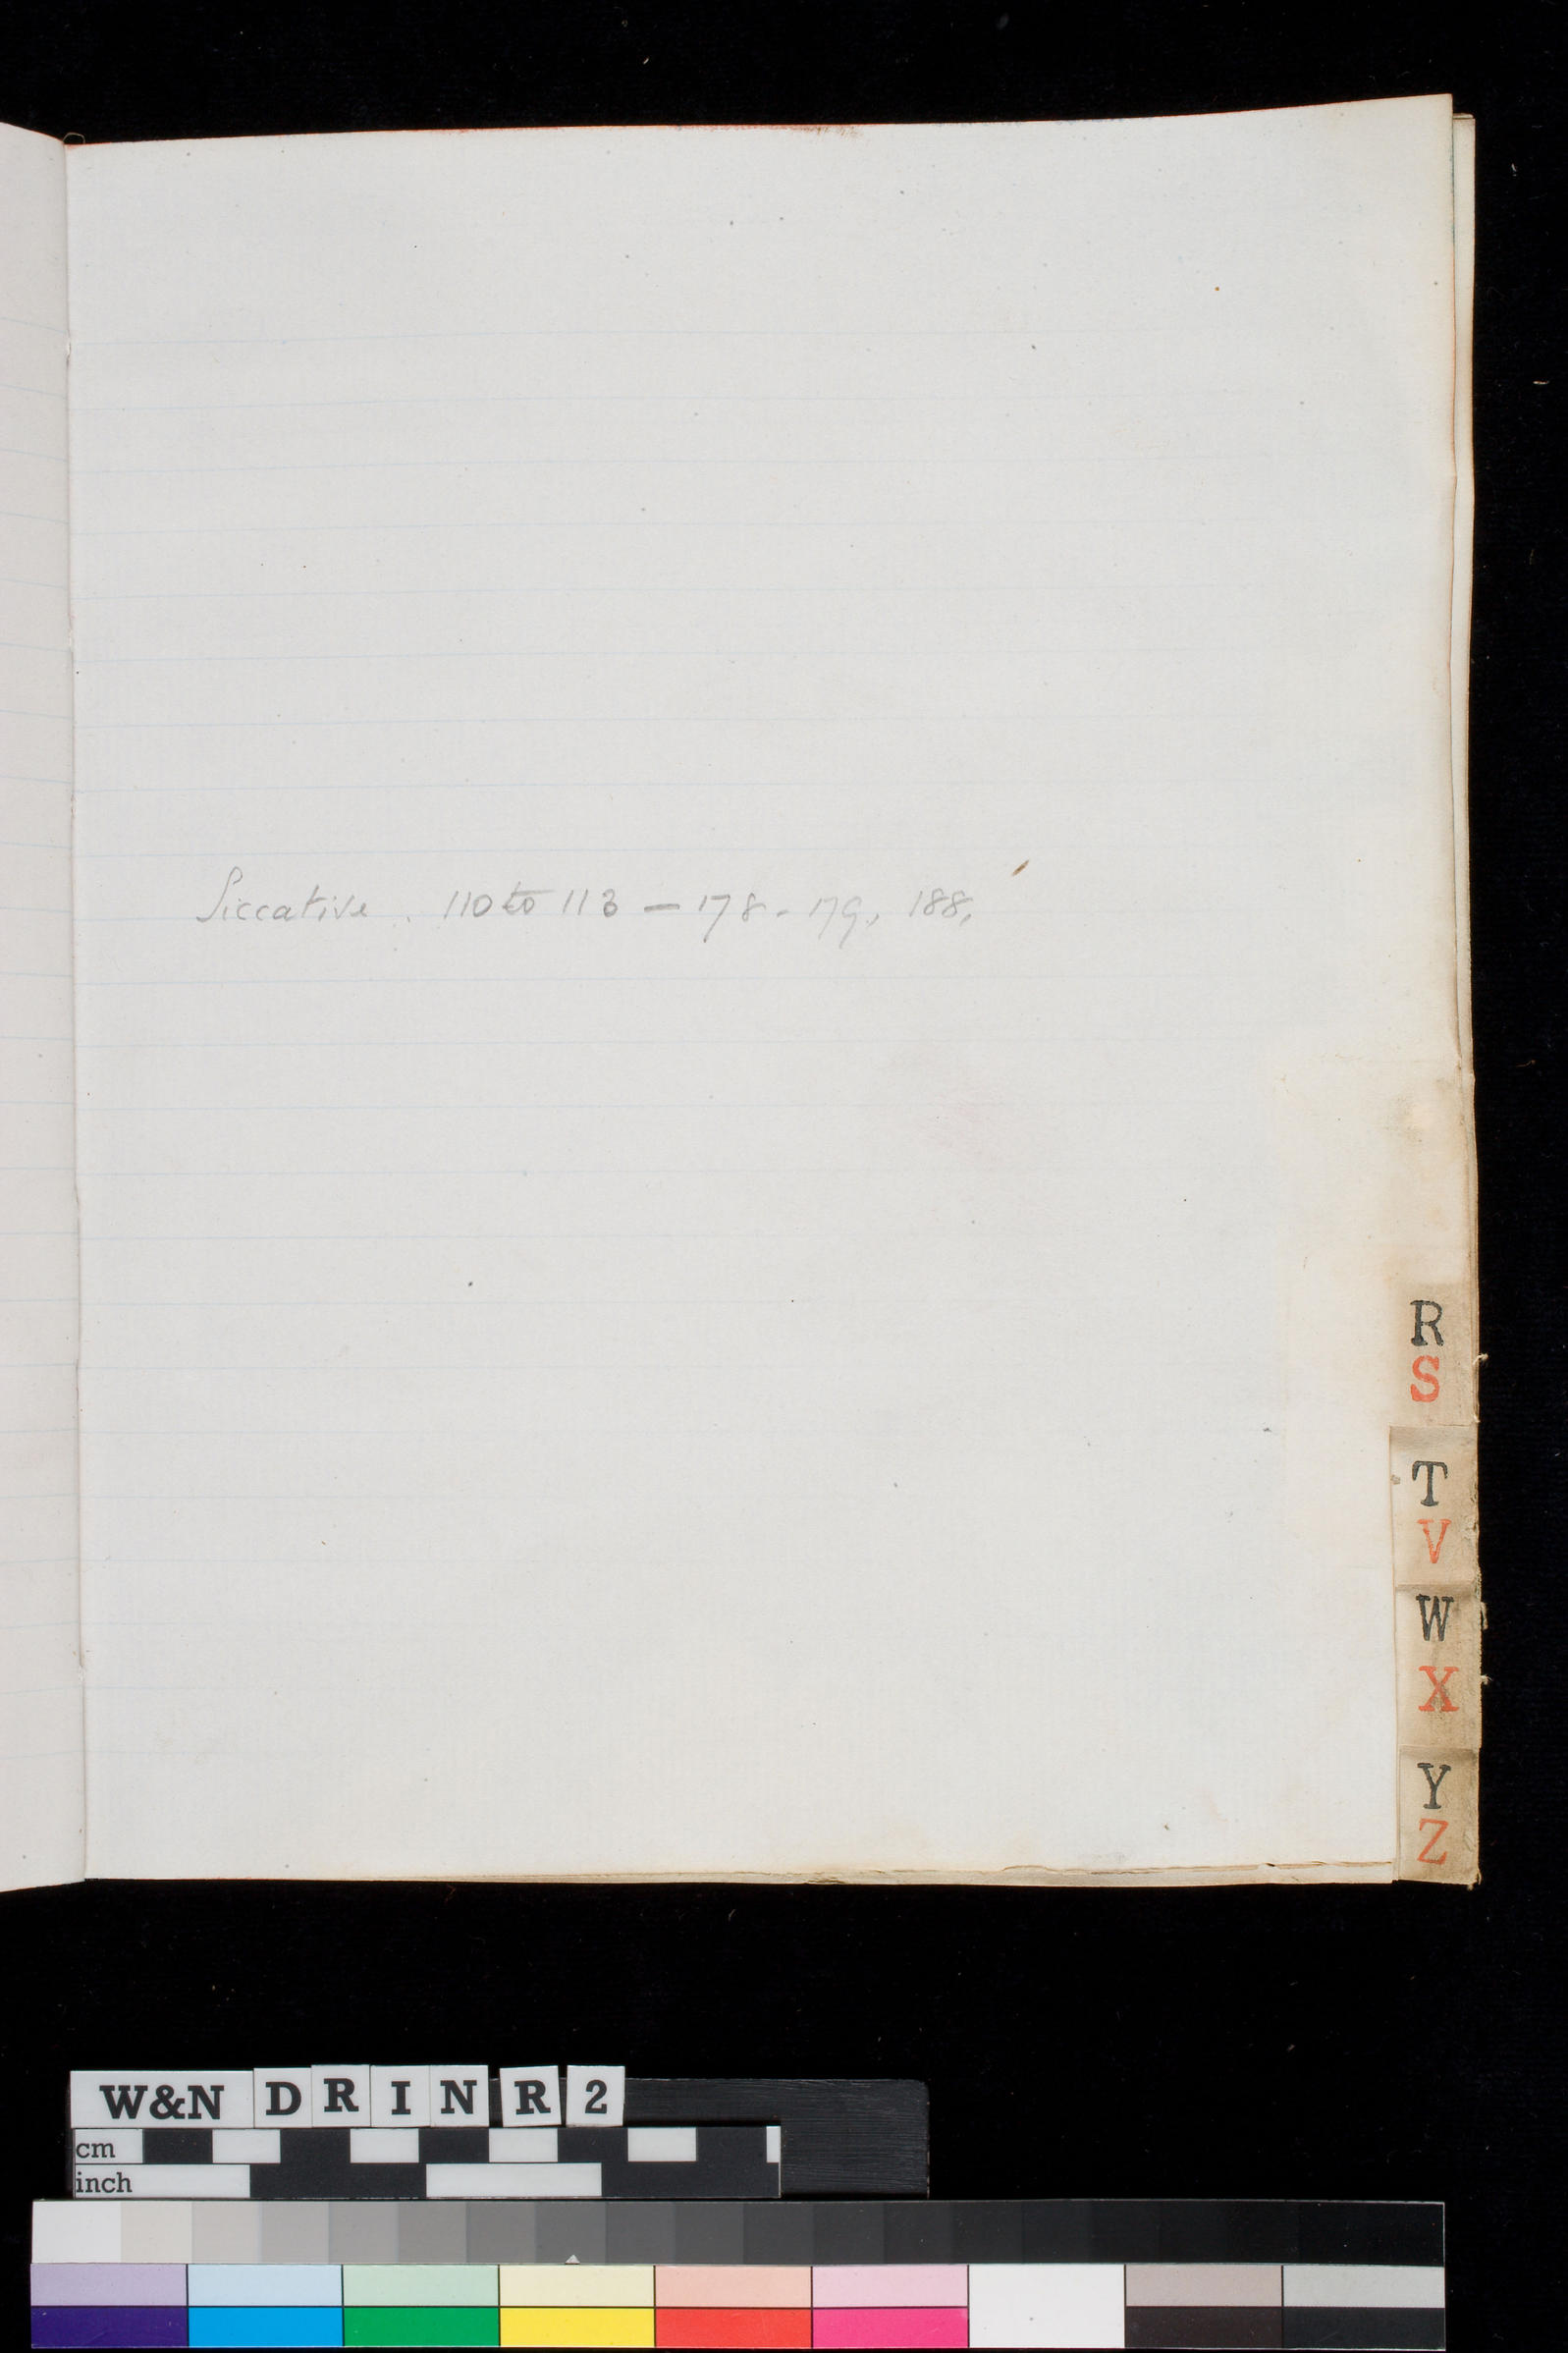 Siccative . 110 to 113 — 178 - 179, 188,
R
S
T
V
W
X
Y
Z
W&N D R I N R 2
cm
inch